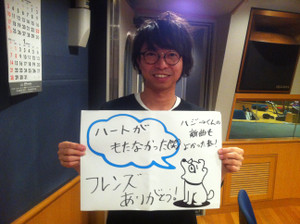 ハートが
もたなかったぜ
ハジーくんの
新曲も
よかったね!
フレンズ
ありがとう!